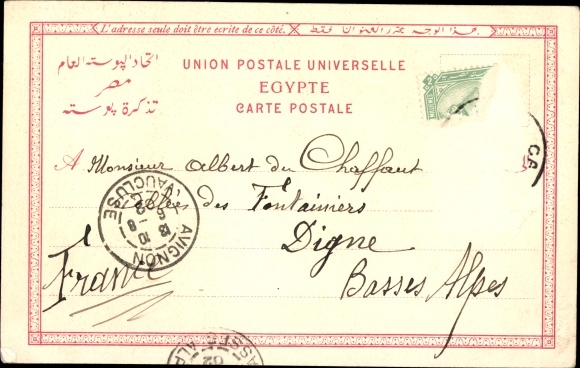 L'adresse seule doit être écrite de ce côté.
هذا الوجه محرر للعنوان فقط
اتحاد البوسته العام
مصر
تذكرة بوسته
UNION POSTALE UNIVERSELLE
EGYPTE
CARTE POSTALE
A Monsieur Albert du Chaffaut
Allées des Fontainiers
Digne
Basses Alpes
France
AVIGNON
VAUCLUSE
CA